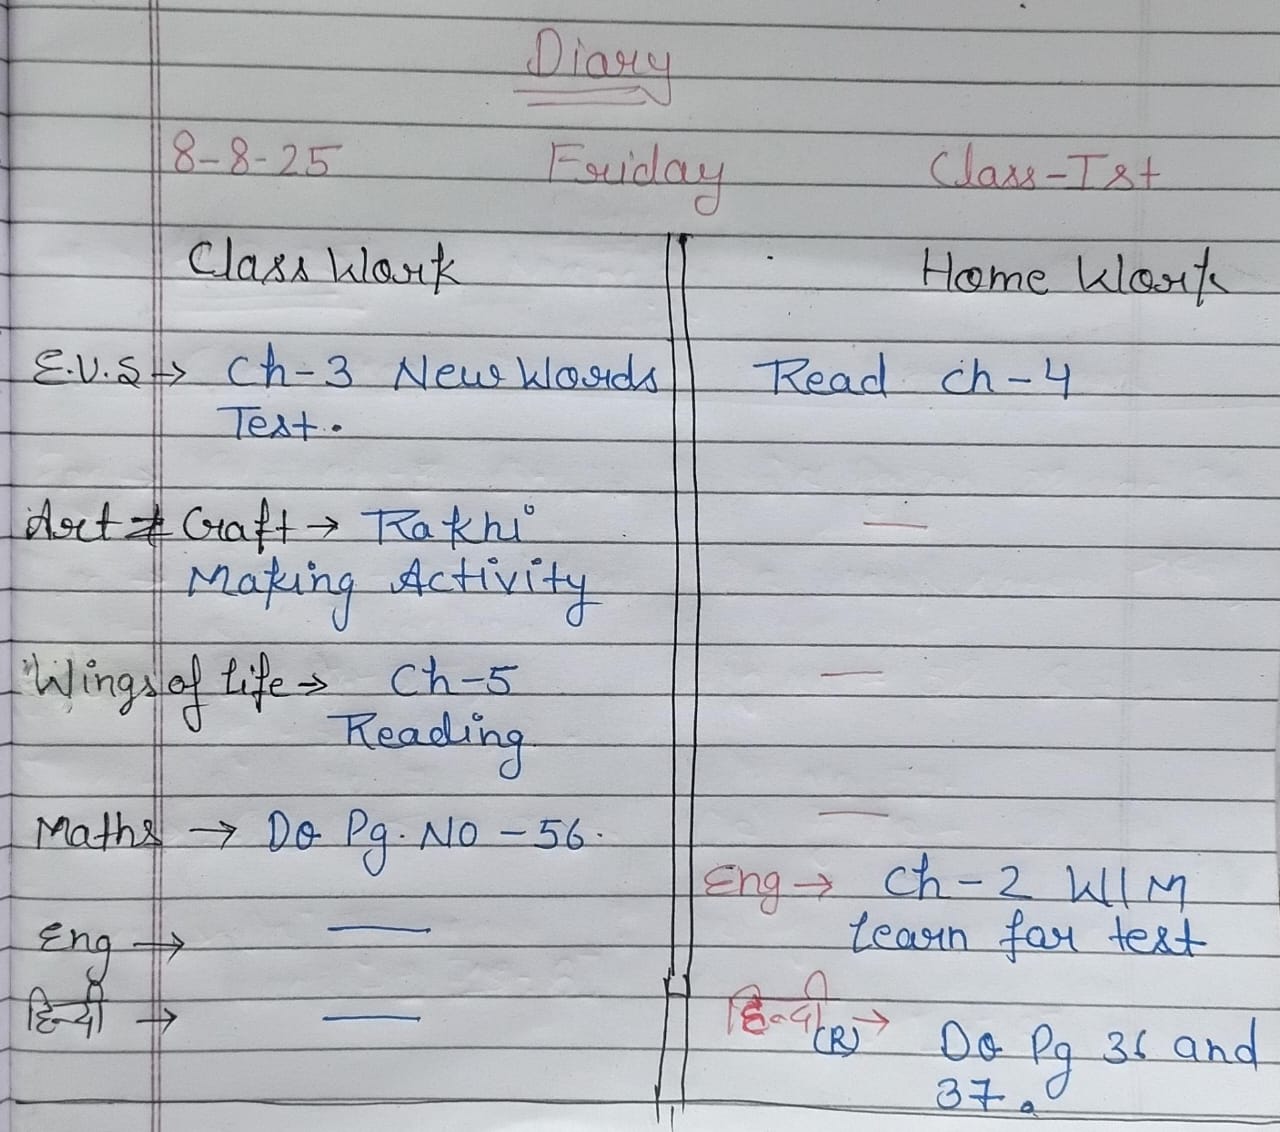 Diary
8-8-25 Friday Class-Ist
Class Work Home Work
E.V.S → Ch-3 New Words Read ch-4
Test.
Art & Craft → Rakhi —
Making Activity
Wings of life → Ch-5 —
Reading
Maths → Do Pg. No - 56. —
Eng → Ch-2 W/M
Eng → — learn for test
हिन्दी → — हिन्दी (R) → Do Pg 36 and
37.